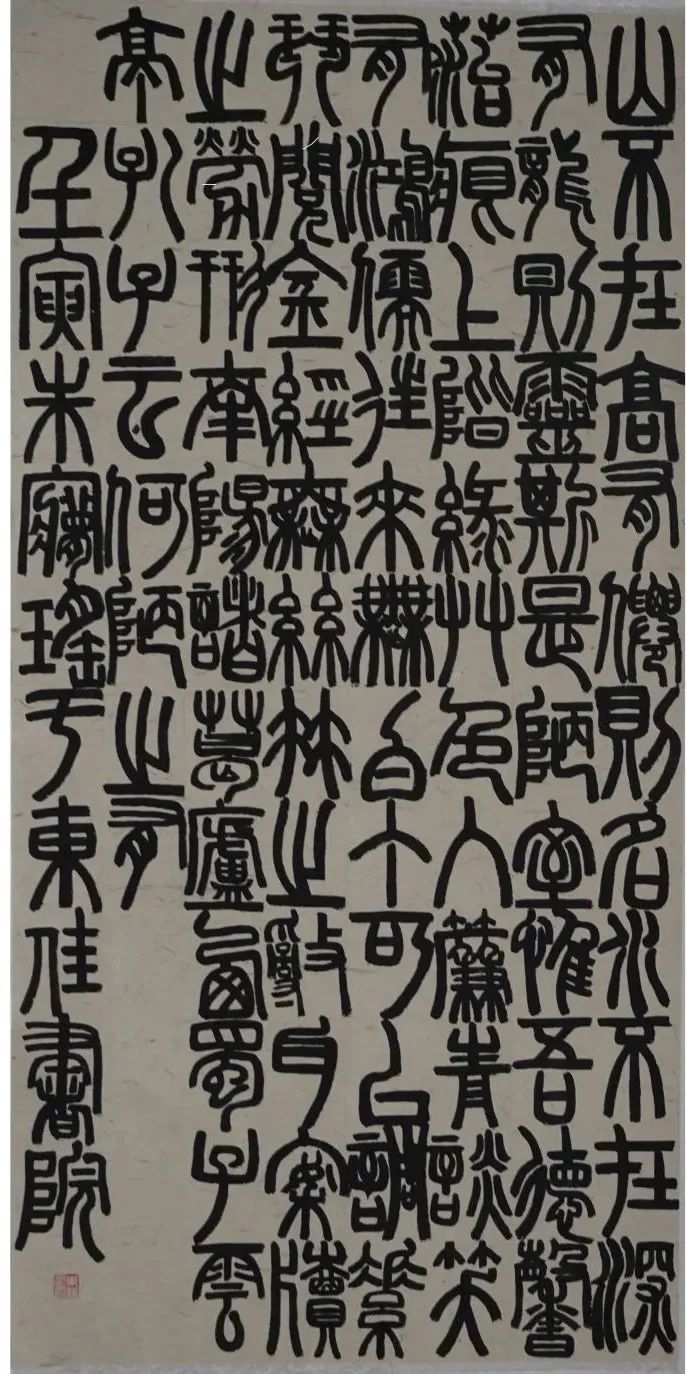 山不在高有僊則名水不在深
有龍則靈斯是陋室惟吾德馨
菭痕上階綠艸色入簾青談笑
有鴻儒往來無白丁可以調素
琴閱金經無絲竹之亂耳案牘
之勞形南陽諸葛廬西蜀子雲
亭孔子云何陋之有
壬寅朱瑤于東佳書院